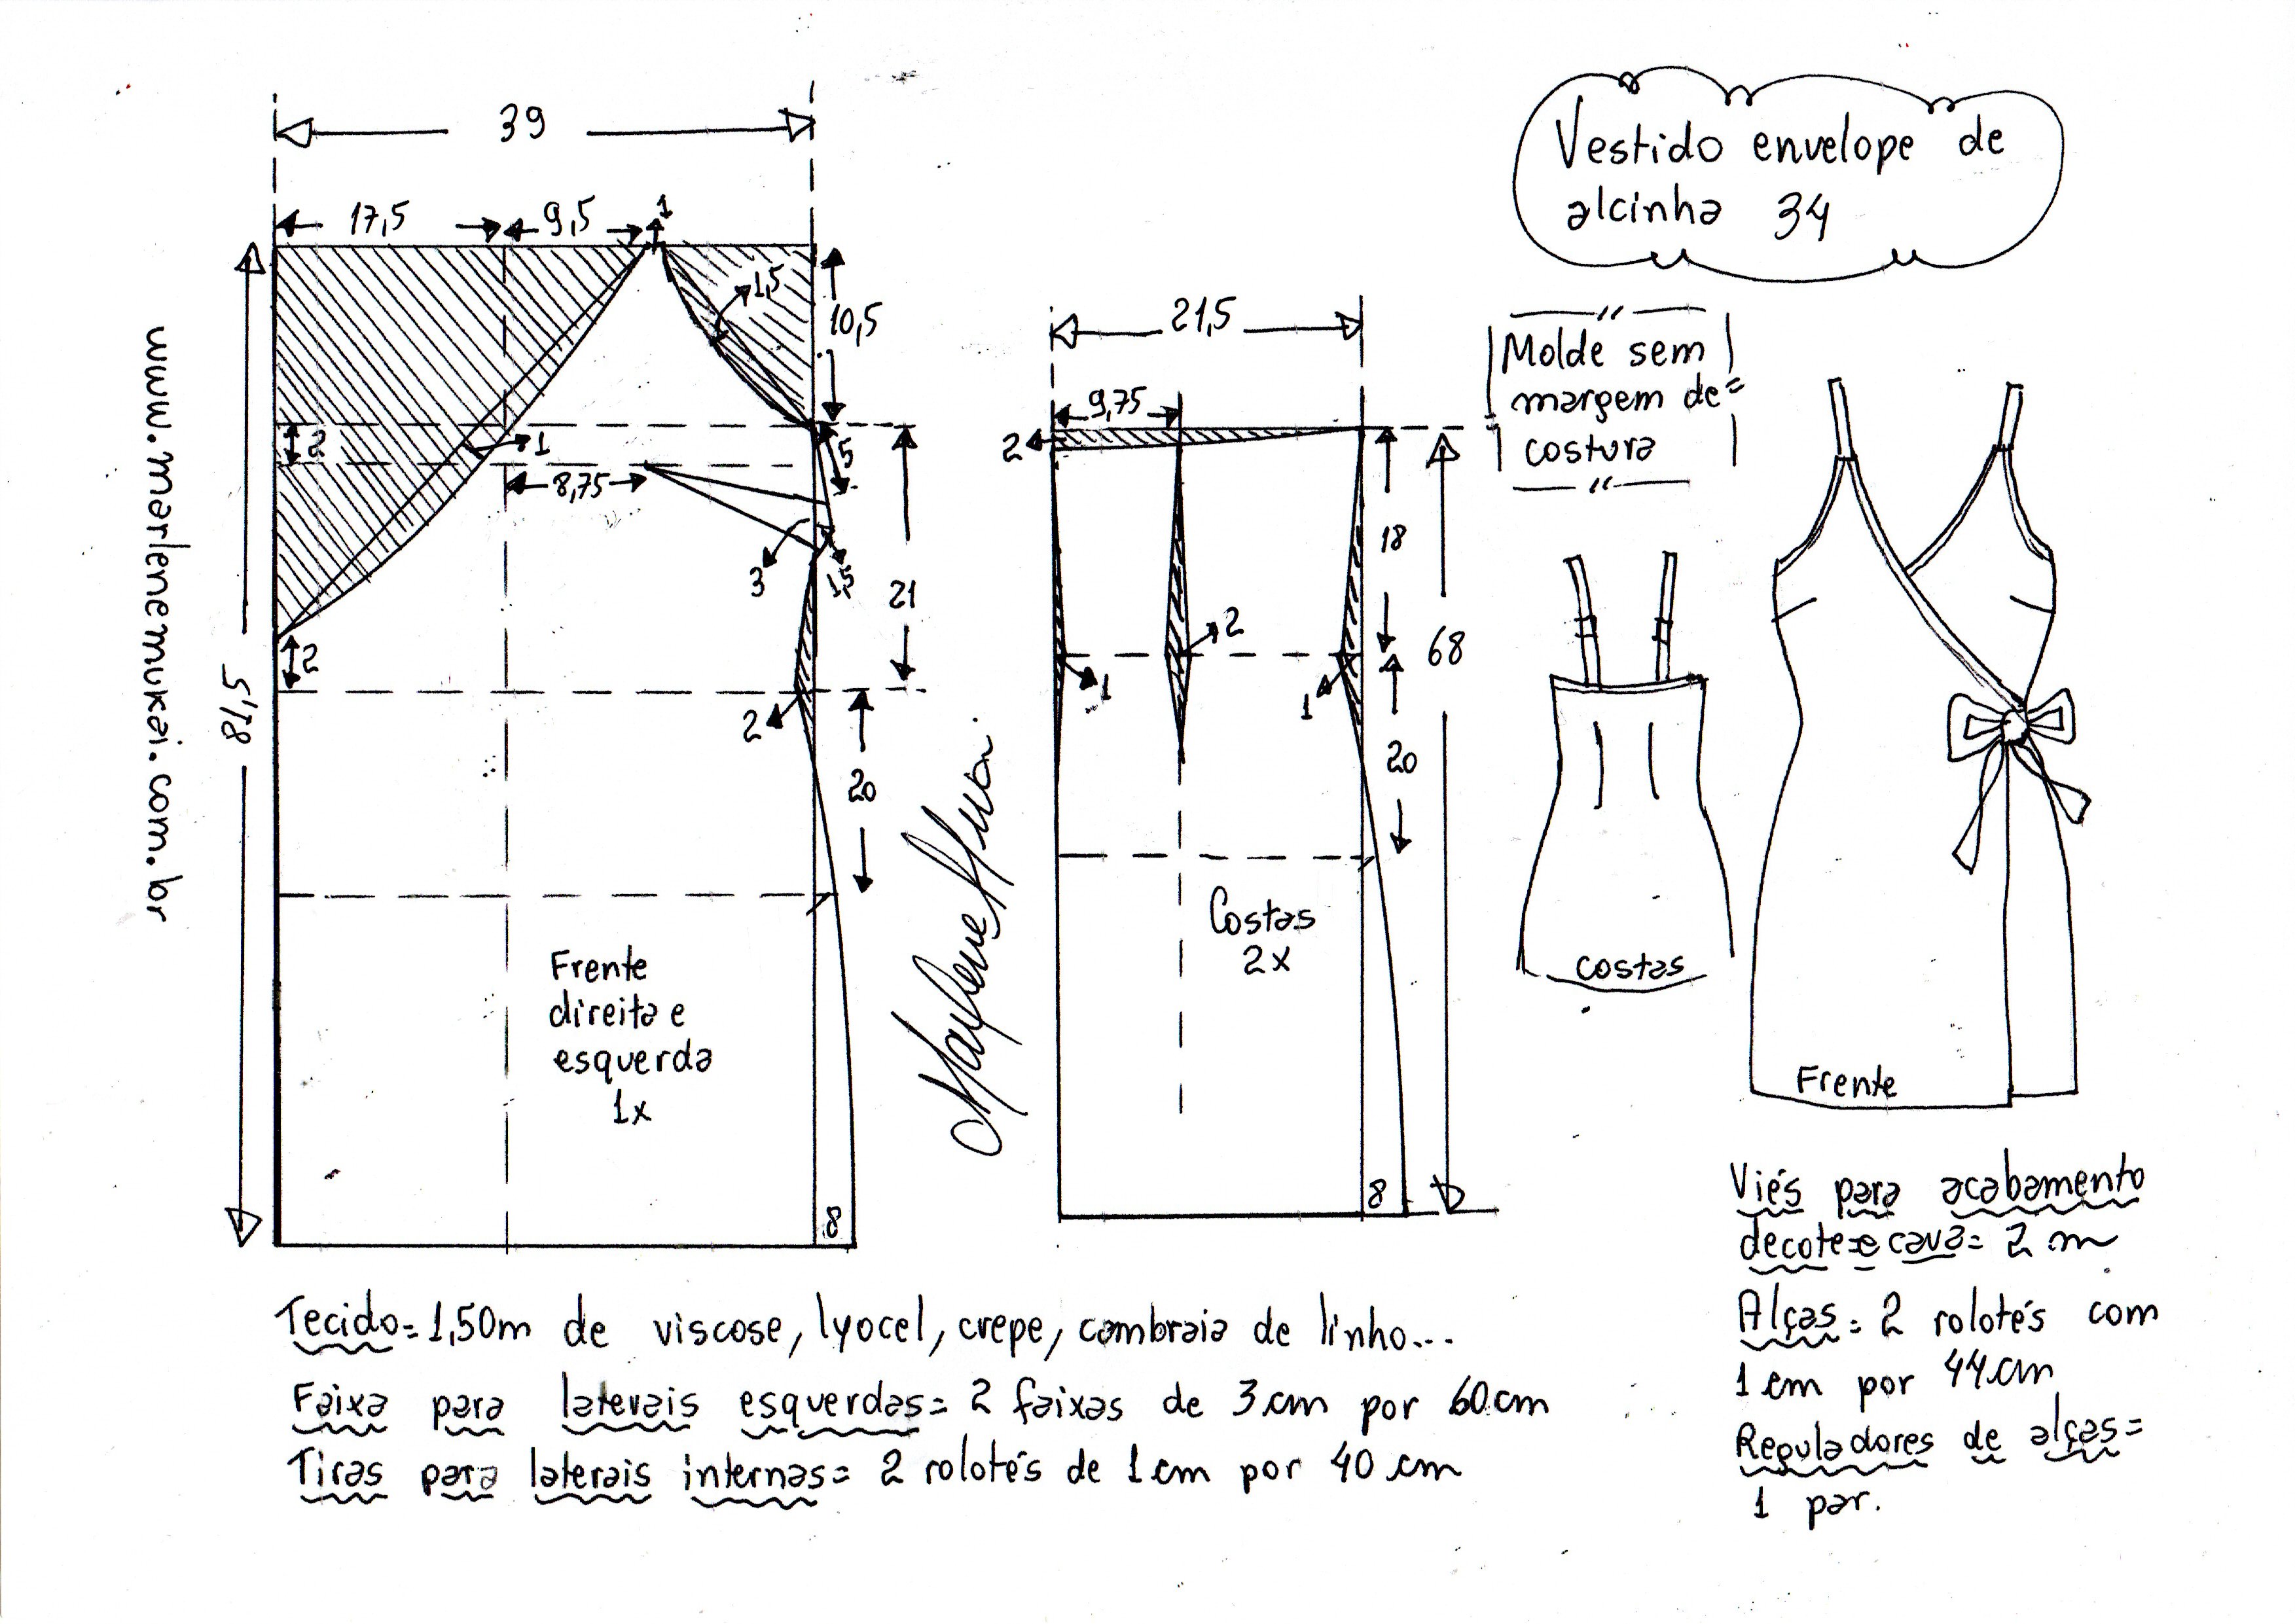 Vestido envelope de
alcinha 34
Molde sem
margem de
costura
www.marlenemukai.com.br
39
17,5
9,5
1
1,5
10,5
2
1
5
8,75
3
1,5
21
2
2
78,5
20
Frente
direita e
esquerda
1x
8
21,5
9,75
2
18
2
68
1
1
20
Costas
2x
8
costas
Frente
Tecido=1,50m de viscose, lyocel, crepe, cambraia de linho...
Faixa para laterais esquerdas= 2 faixas de 3cm por 60cm
Tiras para laterais internas= 2 rolotés de 1cm por 40 cm
Viés para acabamento
decote e cava= 2m
Alças= 2 rolotés com
1cm por 44cm
Reguladores de alças=
1 par.